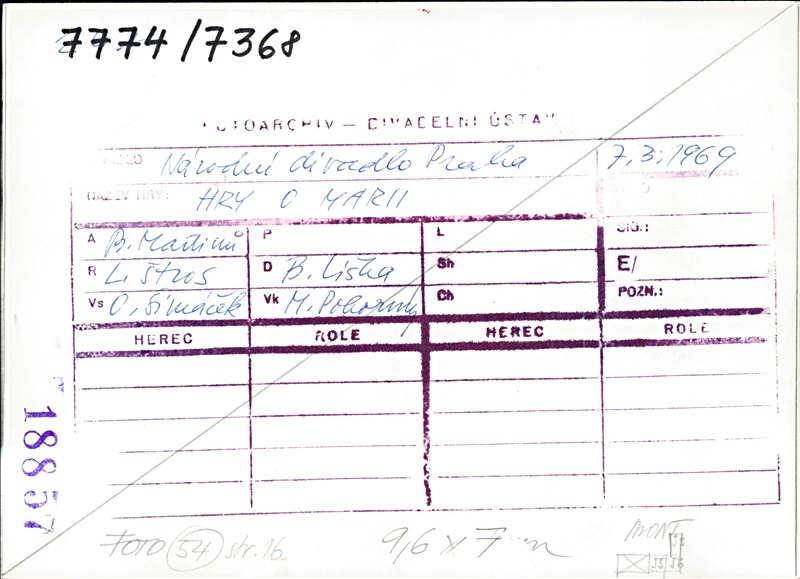 7774/7368
FOTOARCHIV – DIVADELNÍ ÚSTAV
Národní divadlo Praha 7.3.1969
NÁZEV HRY: HRY O MARII
A B. Martinů P L SIG.:
R L. Štros D B. Liška Sh E/
Vs O. Šimáček Vk M. Pokorný Ch POZN.:
HEREC ROLE HEREC ROLE
18857
FOTO 54 str. 16.
9,6 x 7
MONT